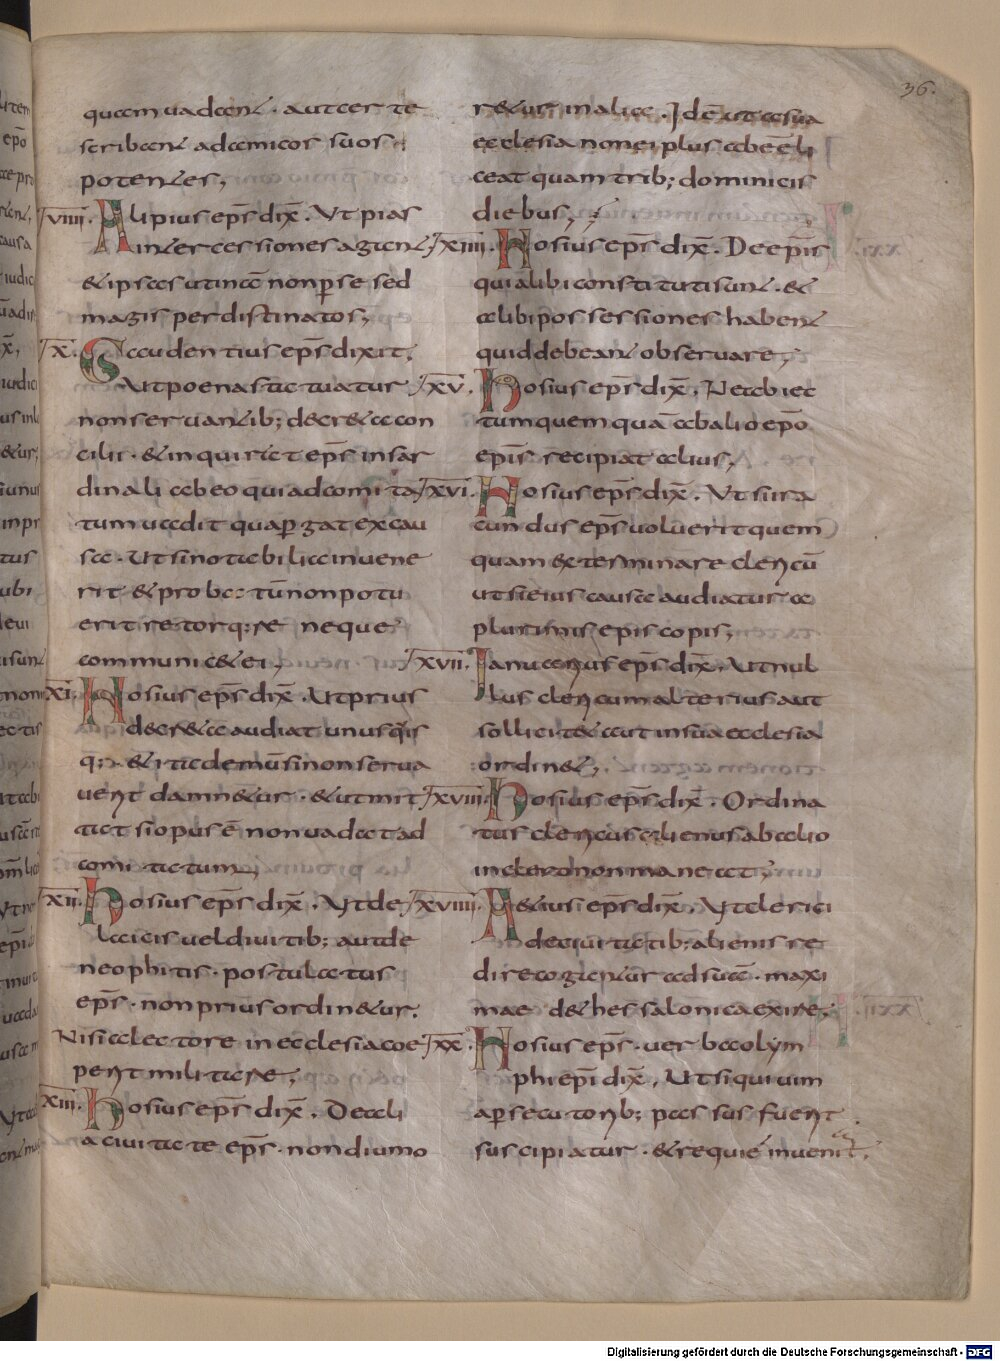 quem vadant · aut certe
scribant ad amicos suos
potentes;
VIIII. Alipius ep̄s dix̄. Ut pias
intercessiones agant
& ipsas utinā non p̱ se sed
magis per distinatos;
X. Gaudentius ep̄s dixit.
Ut poena statuatur
non servantib; decr&a con
cilii · & inquirat ep̄s in sar
dinali abeo qui ad comita
tum vadit qua p̱gat ex cau
sa · Ut si notabilia invene
rit & proba: tūnon potu
erit retorq:re neque
communic& ei;
XI. Hosius ep̄s dix̄. Ut prius
decr&a audiat unusq̄is
q: · & ita demū si non serva
verit damn&ur · & ut mit
tat si opus ē non vadat ad
comitatum;
XII. Hosius ep̄s dix̄. Ut de
laicis vel divitib; aut de
neophitis · postulatus
ep̄s · non prius ordin&ur.
Nisi a lectore in ecclesia coe
perit militare;
XIII. Hosius ep̄s dix̄. De ali
a civitate ep̄s · non diu mo
r&ur in alia. Idē ut a sua
ecclesia non ei plus abeē li
ceat quam trib; dominicis
diebus;
XIIII. Hosius ep̄s dix̄. De ep̄is
qui alibi constituti sunt · &
alibi possessiones habent
quid debeant observare;
XV. Hosius ep̄s dix̄. Ne abiec
tum quemquā ab alio ep̄o
ep̄is recipiat alius;
XVI. Hosius ep̄s dix̄. Ut si ira
cundus ep̄s voluerit quem
quam exterminare clericū
ut si eius causa audiatur a
plurimis episcopis;
XVII. Ianuarius ep̄s dix̄. Ut nul
lus clericum alterius aut
sollicit& aut in sua ecclesia
ordin&;
XVIII. Hosius ep̄s dix̄. Ordina
tus clericus alienus ab alio
in clero non maneat;
XVIIII. A&ius ep̄s dix̄. Ut clerici
de civitatib; alienis re
dire cogantur ad suā · maxi
mae de thessalonica exire;
XX. Hosius ep̄s · verba olym
phi ep̄i dix̄. Ut si qui vim
a p̱secutorib; passus fuerit
suscipiatur · & requiē inveniat.
36.
Digitalisierung gefördert durch die Deutsche Forschungsgemeinschaft - DFG